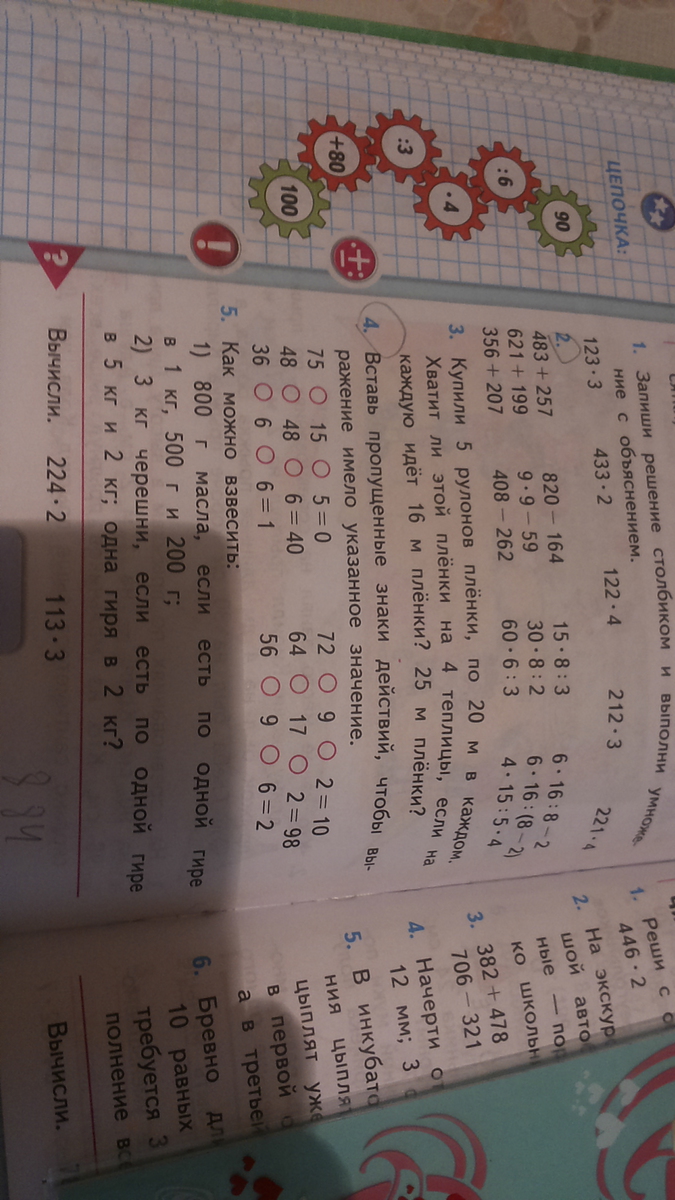 ЦЕПОЧКА:
90
:6
·4
:3
+80
100
1. Запиши решение столбиком и выполни умноже-
ние с объяснением.
123·3 433·2 122·4 212·3 221·4
2.
483+257 820−164 15·8:3 6·16:8−2
621+199 9·9−59 30·8:2 6·16:(8−2)
356+207 408−262 60·6:3 4·15:5·4
3. Купили 5 рулонов плёнки, по 20 м в каждом.
Хватит ли этой плёнки на 4 теплицы, если на
каждую идёт 16 м плёнки? 25 м плёнки?
4. Вставь пропущенные знаки действий, чтобы вы-
ражение имело указанное значение.
75 ○ 15 ○ 5=0 72 ○ 9 ○ 2=10
48 ○ 48 ○ 6=40 64 ○ 17 ○ 2=98
36 ○ 6 ○ 6=1 56 ○ 9 ○ 6=2
5. Как можно взвесить:
1) 800 г масла, если есть по одной гире
в 1 кг, 500 г и 200 г;
2) 3 кг черешни, если есть по одной гире
в 5 кг и 2 кг; одна гиря в 2 кг?
!
?
Вычисли. 224·2 113·3
1. Реши с о
446·2
2. На экскур
шой авто
ные — пор
ко школьн
3. 382+478
706−321
4. Начерти от
12 мм; 3 с
5. В инкубато
ния цыплят
цыплят уже
в первой
а в третьей
6. Бревно дли
10 равных
требуется 3
полнение все
Вычисли.